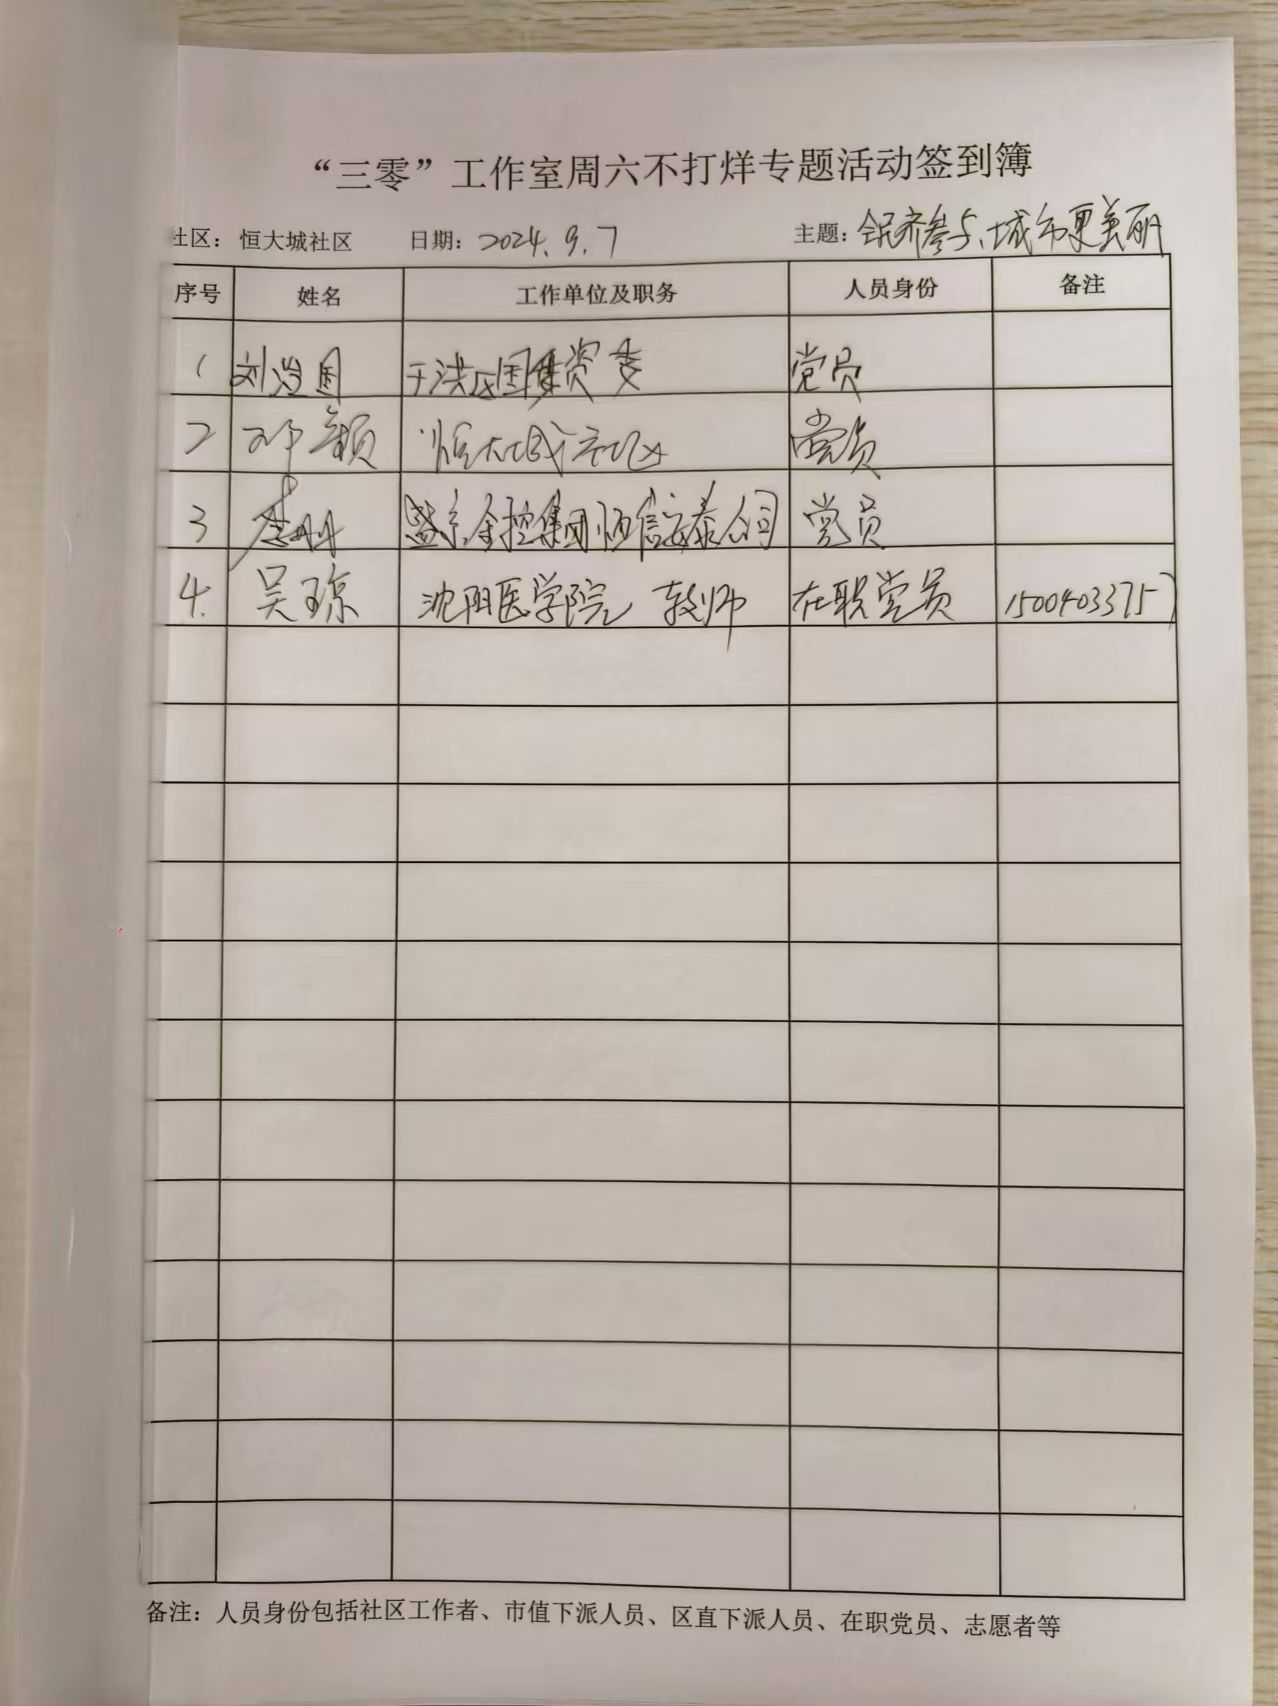 “三零”工作室周六不打烊专题活动签到簿
社区：恒大城社区 日期：2024.9.7 主题：全民齐参与、城市更美丽
序号 姓名 工作单位及职务 人员身份 备注
1 刘 国 于洪区国资委 党员
2 邓颖 恒大城社区 党员
3 李 盛京金控集团恒信安泰公司 党员
4. 吴琼 沈阳医学院 教师 在职党员 15004033757
备注：人员身份包括社区工作者、市值下派人员、区直下派人员、在职党员、志愿者等